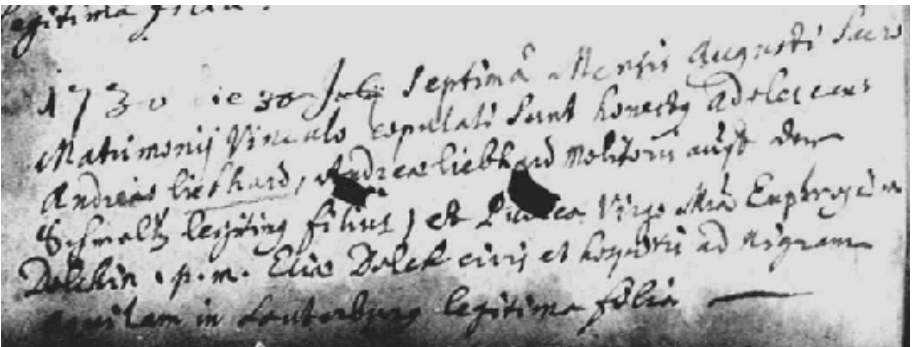 legitima filia.
1730 die 30 July Septimâ Mensis Augusti Sacro
Matrimonij Vinculo copulati sunt honestg Adolescens
Andreas Liebhard, Andreae Liebhard Molitoris auff der
Schmeltz legitimg filius, et Pudica Virgo Mia Euphrosina
Dolckin. p. m. Eliae Dolck civis et hospitis ad nigram
aquilam in Lauterburg legitima filia